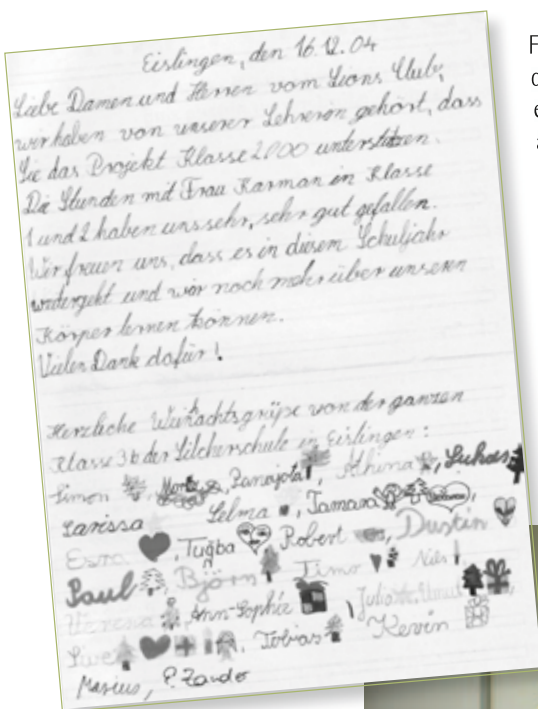 Eislingen, den 16.12.04
Liebe Damen und Herren vom Lions Club,
wir haben von unserer Lehrerin gehört, dass
Sie das Projekt Klasse 2000 unterstützen.
Die Stunden mit Frau Karman in Klasse
1 und 2 haben uns sehr, sehr gut gefallen.
Wir freuen uns, dass es in diesem Schuljahr
weitergeht und wir noch mehr über unseren
Körper lernen können.
Vielen Dank dafür!
Herzliche Weihnachtsgrüße von der ganzen
Klasse 3b der Silcherschule in Eislingen:
Simon, Moritz, Panajota, Athina, Lukas
Larissa, Selma, Tamara,
Esra, Tuğba, Robert, Dustin
Paul, Björn, Timo, Nils
Verena, Ann-Sophie, Juliane,
Tobias, Kevin
Marius, P. Zander